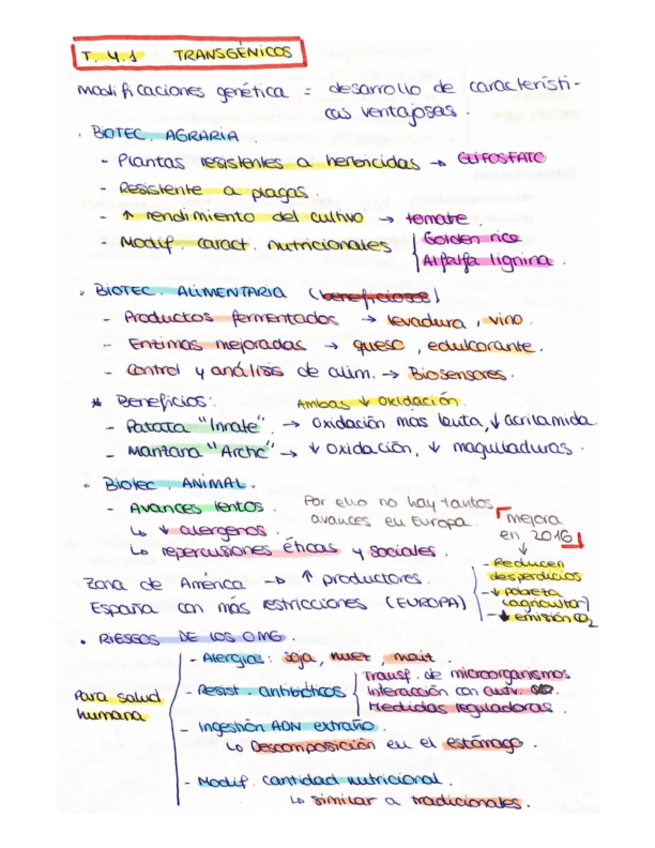 T. 4.1 TRANSGÉNICOS
modificaciones genética = desarrollo de característi-
cas ventajosas.
· BIOTEC. AGRARIA.
- Plantas resistentes a herbicidas → GLIFOSFATO
- Resistente a plagas.
- ↑ rendimiento del cultivo → tomate.
- Modif. caract. nutricionales
Golden rice
Alfalfa lignina.
· BIOTEC. ALIMENTARIA (beneficiosos)
- Productos fermentados → levadura, vino.
- Enzimas mejoradas → queso, edulcorante.
- Control y análisis de alim. → Biosensores.
* Beneficios: Ambas ↓ oxidación.
- Patata "Innate" → Oxidación más lenta, ↓ acrilamida.
- Manzana "Artic" → ↓ Oxidación, ↓ magulladuras.
· Biotec. ANIMAL.
- Avances lentos. Por ello no hay tantos
avances en Europa.
↳ ↓ alergenos.
↳ repercusiones éticas y sociales.
mejora
en 2016
Zona de América → ↑ productores.
España con más restricciones (EUROPA)
- Reducen
desperdicios
- ↓ pobreza
- ↓ emisión CO2
· RIESGOS DE LOS OMG.
Para salud
humana
- Alergias: soja, nuez, maiz.
- Resist. antibióticos
Transf. de microorganismos
Interacción con
Medidas reguladoras.
- Ingestión ADN extraño.
↳ Descomposición en el estómago.
- Modif. cantidad nutricional.
↳ similar a tradicionales.